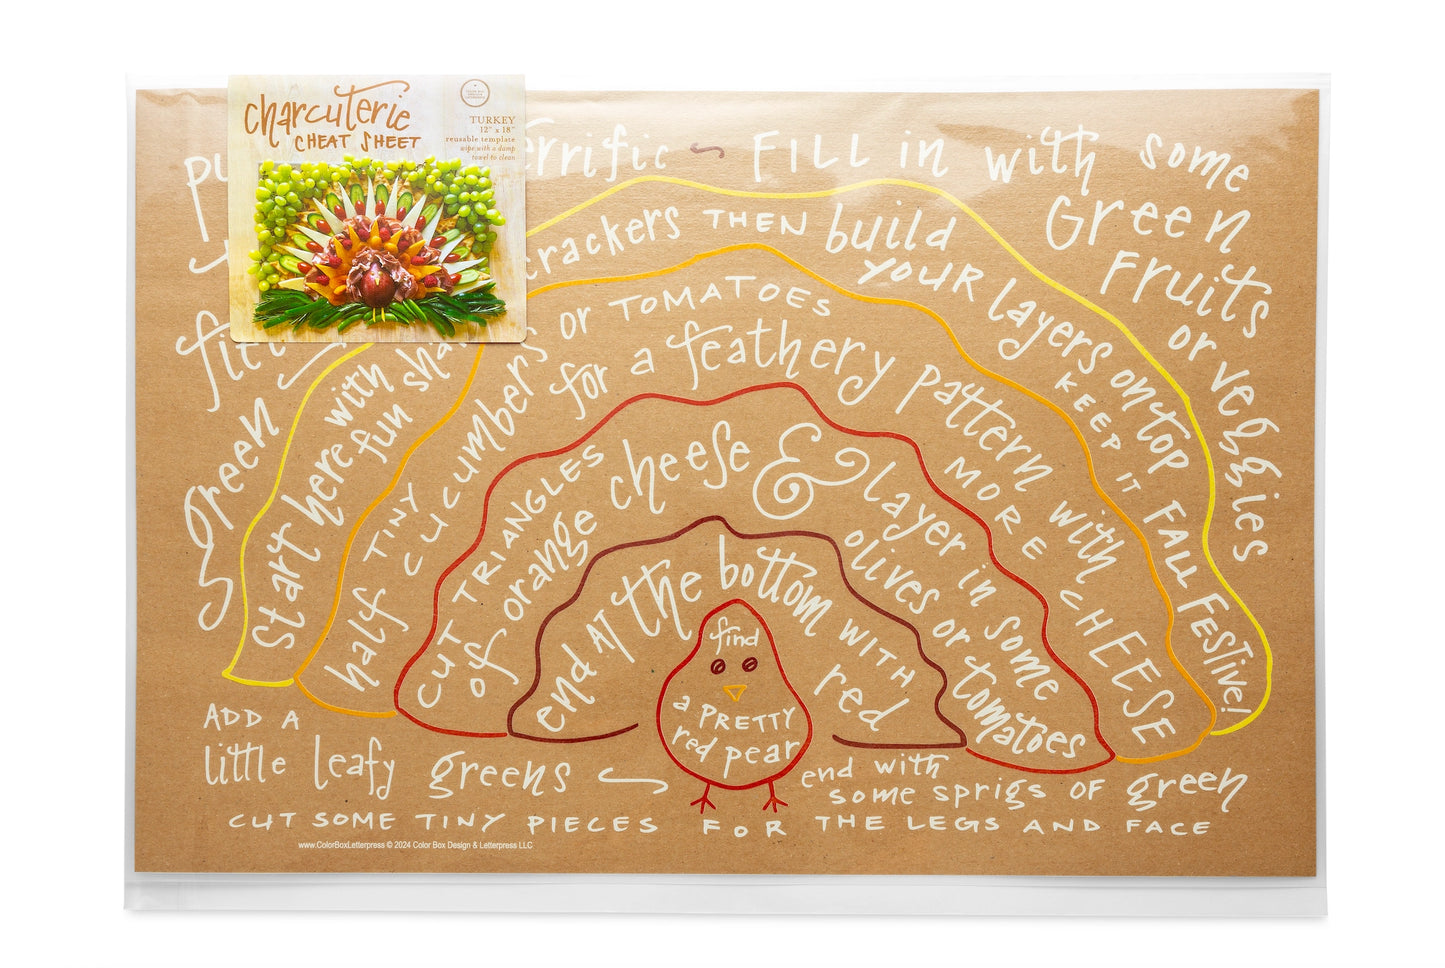 charcuterie
CHEAT SHEET
TURKEY
12" x 18"
reusable template
wipe with a damp
towel to clean
FILL in with some
Green
Fruits
or veggies
green
crackers THEN build
YOUR layers on top
KEEP IT FALL FESTIVE!
Start here with
fun
half TINY
CUCUMBERS or TOMATOES
for a feathery pattern with
MORE CHEESE
CUT TRIANGLES
of orange cheese & layer in some
olives or tomatoes
end AT the bottom WITH
red
find
a PRETTY
red pear
ADD A
little leafy greens
end with
some sprigs OF green
CUT SOME TINY PIECES FOR THE LEGS AND FACE
www.ColorBoxLetterpress © 2024 Color Box Design & Letterpress LLC